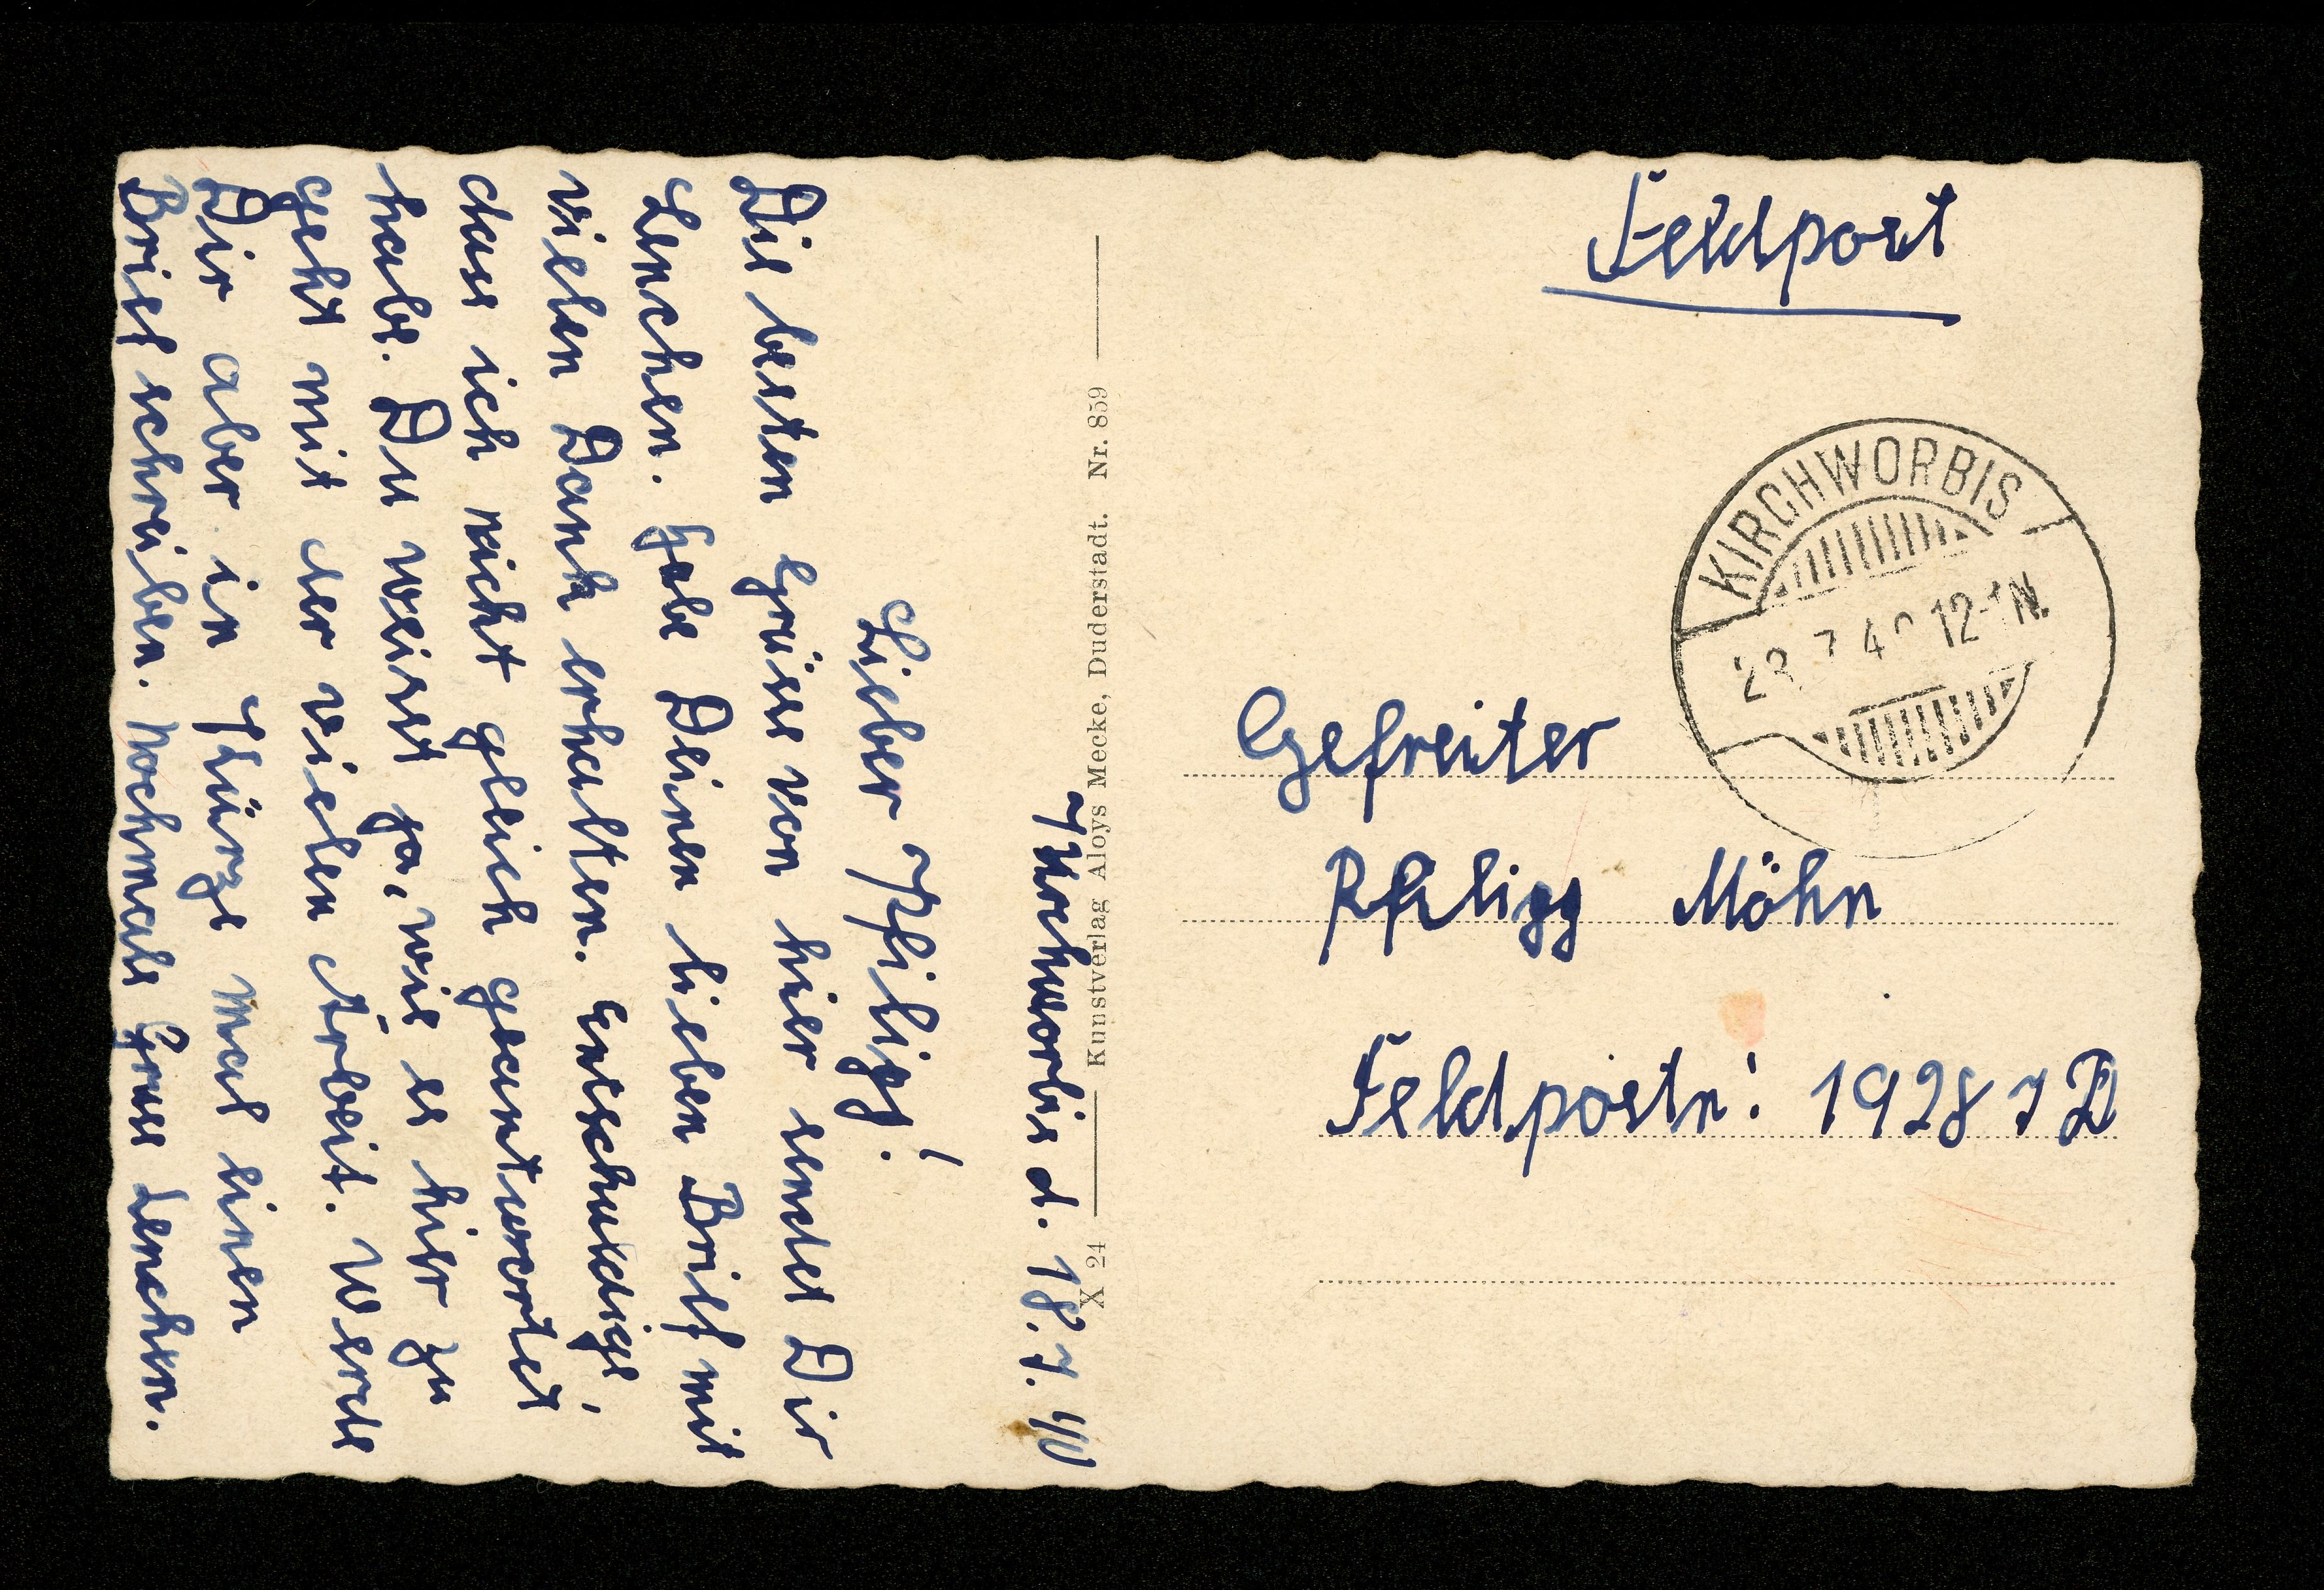 Kirchworbis d. 18.7.40
Lieber Philipp!
Die besten Grüsse von hier sendet Dir
Lenchen. Habe Deinen lieben Brief mit
vielen Dank erhalten. Entschuldige,
dass ich nicht gleich geantwortet
habe. Du weisst ja, wie es hier zu
geht mit der vielen Arbeit. Werde
Dir aber in Kürze mal einen
Brief schreiben. Nochmals Gruss Lenchen.
X 24 Kunstverlag Aloys Mecke, Duderstadt. Nr. 859
Feldpost
KIRCHWORBIS
7 40 12-1N.
Gefreiter
Philipp Möhn
Feldpostn: 19287 D